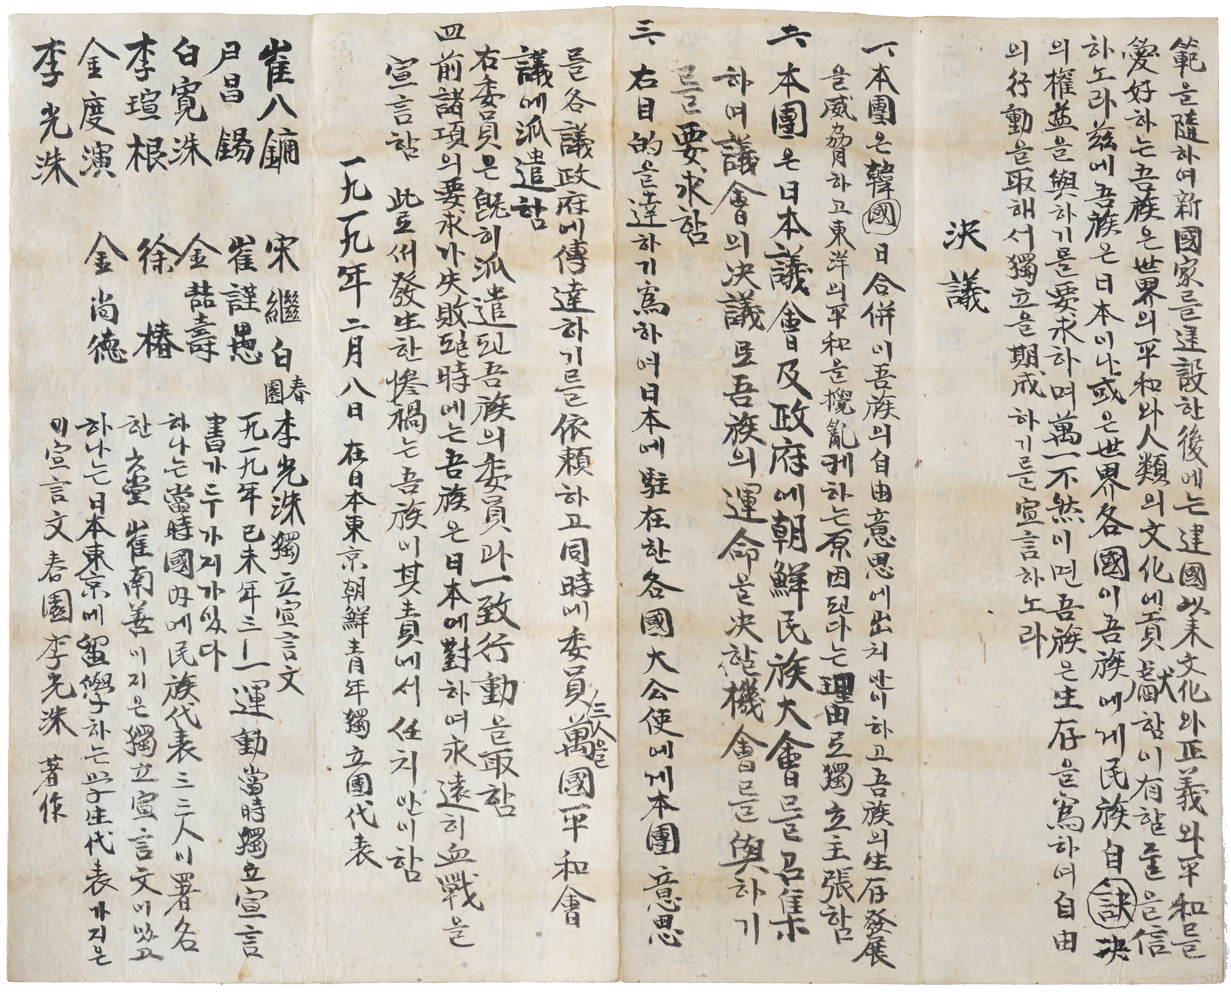 範을隨하여新國家를建設한後에는建國以來文化와正義와平和를
愛好하는吾族은世界의平和와人類의文化에貢獻함이有할줄을信
하노라玆에吾族은日本이나或은世界各國이吾族에게民族自決
의權益을與하기를要求하며萬一不然이면吾族은生存을爲하여自由
의行動을取해서獨立을期成하기를宣言하노라
決議
一 本團은韓國日合併이吾族의自由意思에出치안이하고吾族의生存發展
을威脅하고東洋의平和을攪亂케하는原因된다는理由로獨立主張함
二 本團은日本議會及政府에朝鮮民族大會를召集
하며議會의決議로吾族의運命을決할機會를與하기
를要求함
三 右目的을達하기爲하여日本에駐在한各國大公使에게本團意思
를各議政府에傳達하기를依頼하고同時에委員三人을萬國平和會
議에派遣함
右委員은旣히派遣된吾族의委員과一致行動을取함
四 前諸項의要求가失敗될時에는吾族은日本에對하여永遠히血戰을
宣言함 此로써發生한慘禍는吾族이其責에서任치안이함
一九一九年二月八日 在日本東京朝鮮靑年獨立團代表
崔八鏞
尹昌錫
白寬洙
李琮根
金度演
李光洙
宋繼白
崔謹愚
金喆壽
徐椿
金尚德
春園李光洙獨立宣言文
一九一九年己未年三一運動當時獨立宣言
書가두가지가있다
하나는當時國內에民族代表三三人이署名
한六堂崔南善이지은獨立宣言文이있고
하나는日本東京에留學하는學生代表가지은
이宣言文春園李光洙著作